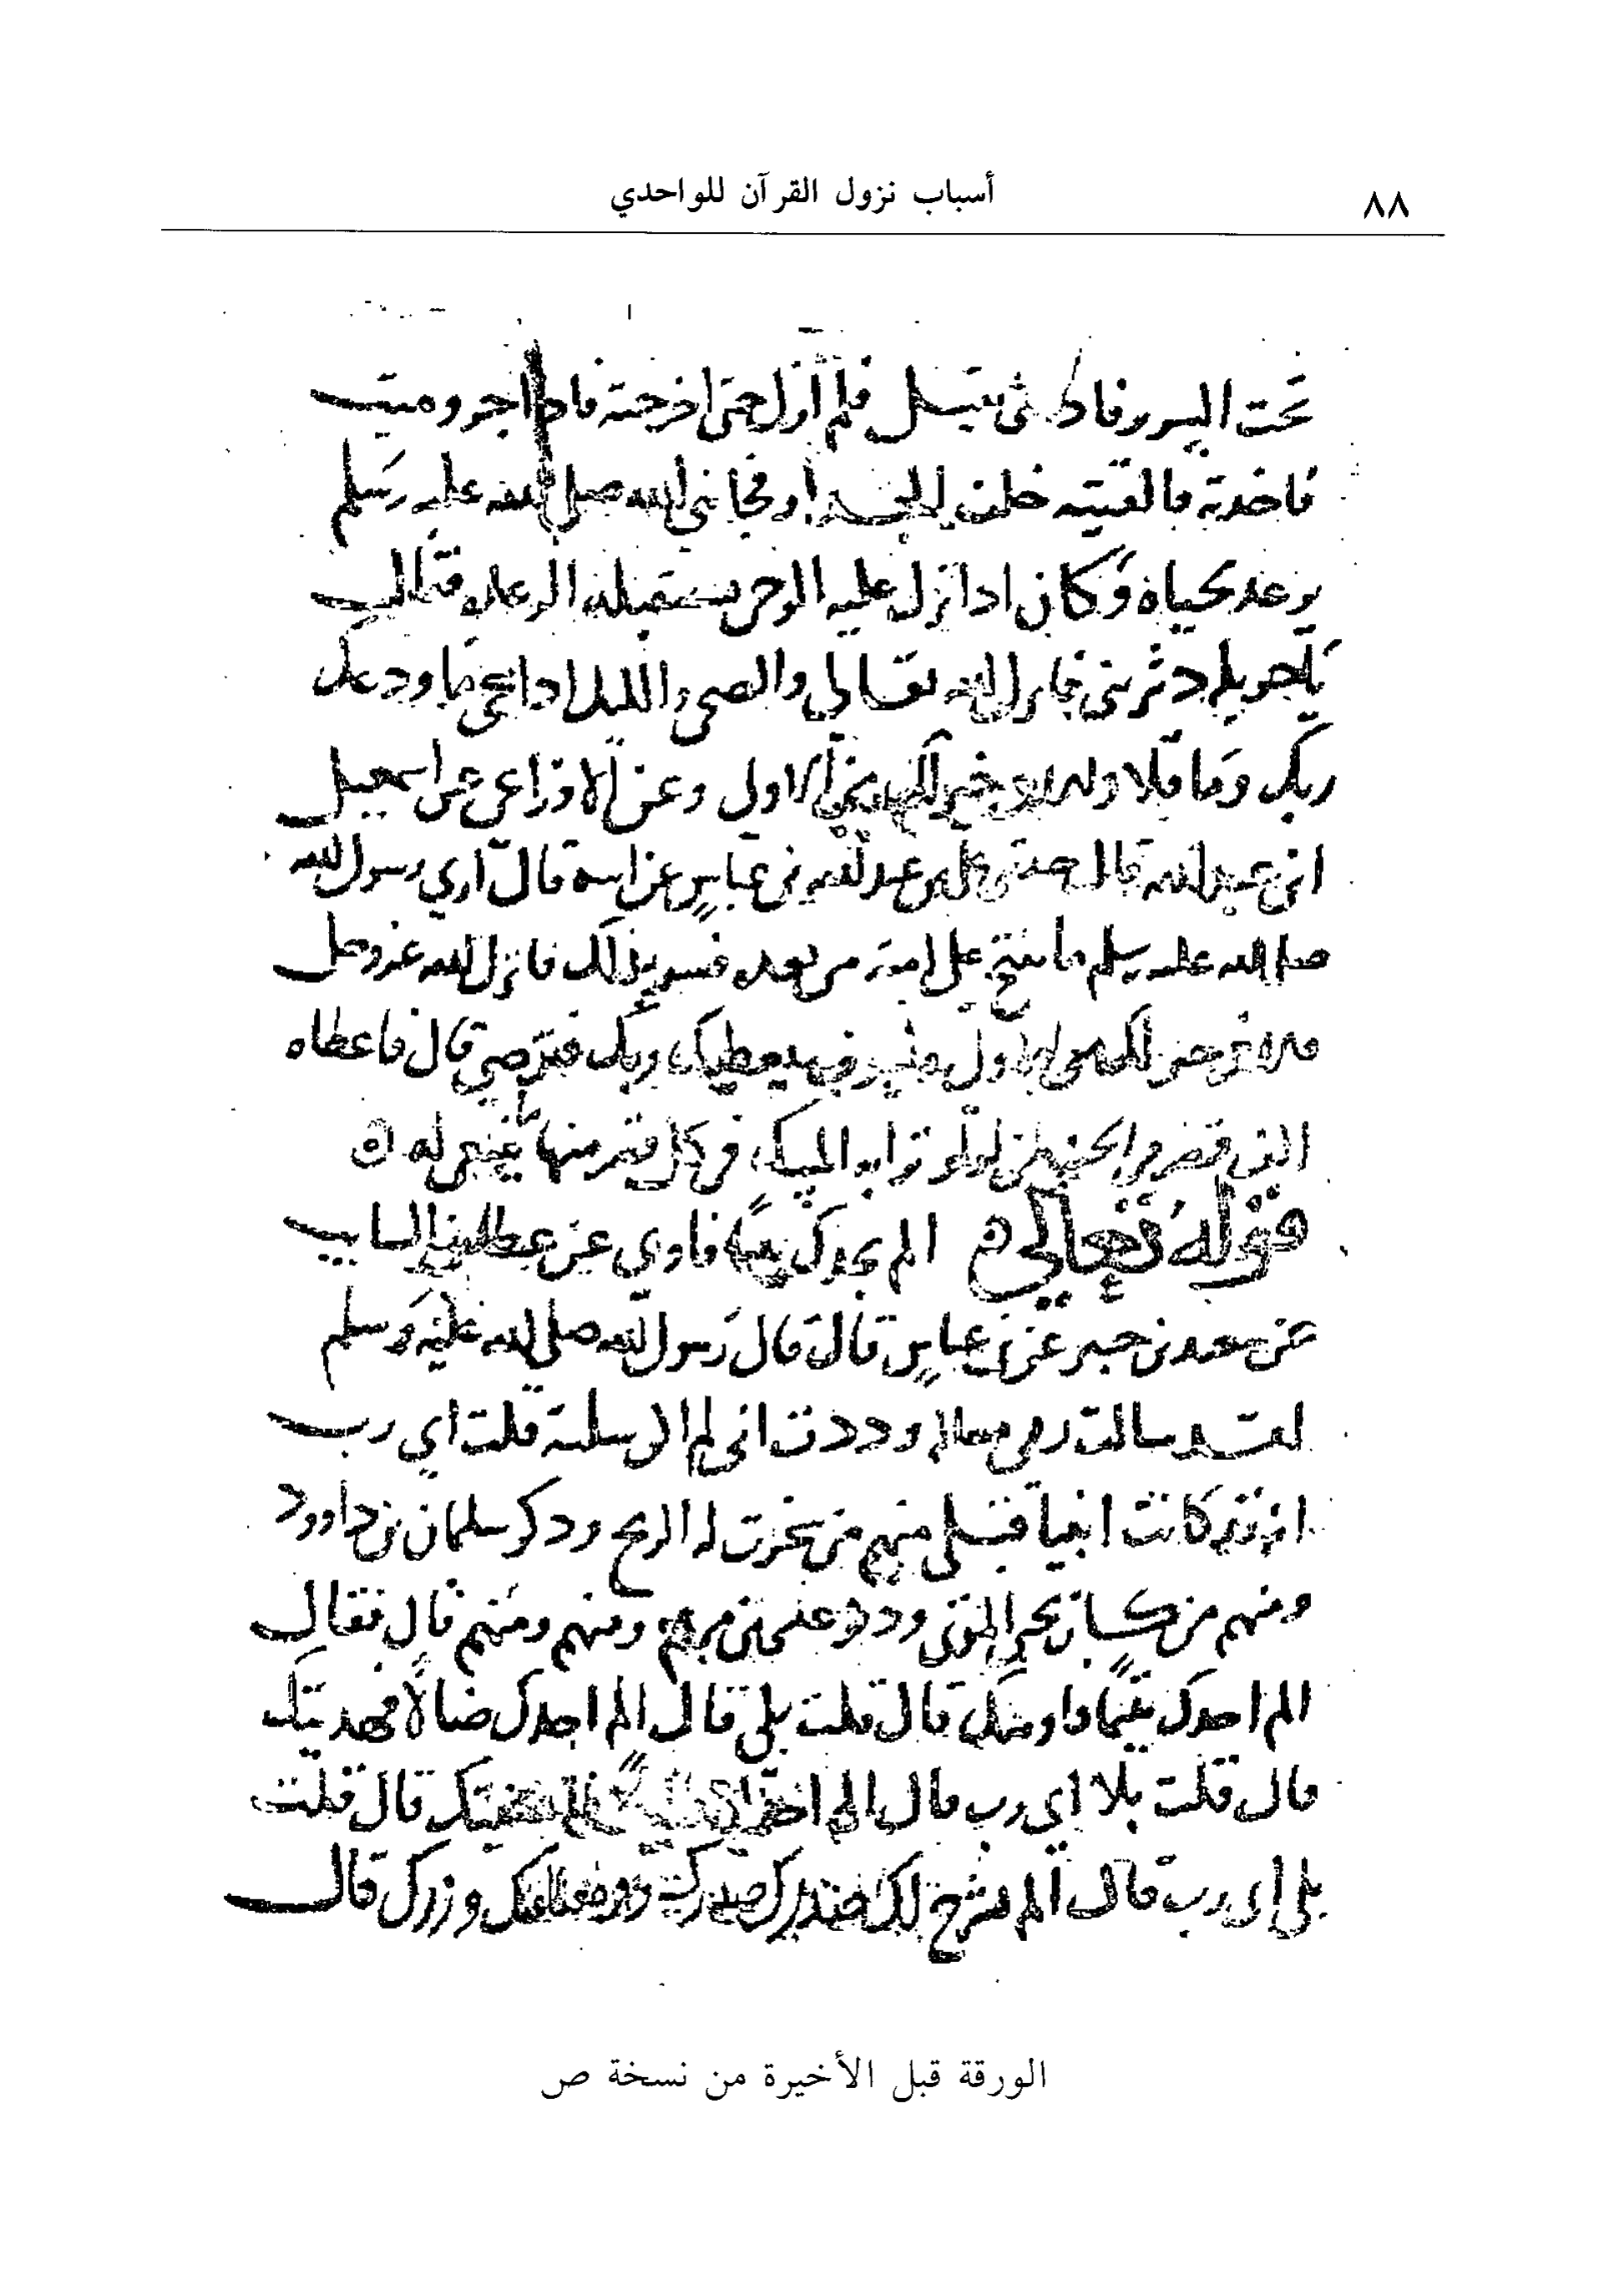 ٨٨
أسباب نزول القرآن للواحدي
تحت السرير فاذا شي ثقيل فلم ازل حتى اخرجته فاذا جرو ميت
فاخذته فالقيته خلف الجدار فجا نبي الله صلى الله عليه وسلم
يرعد لحياه وكان اذا نزل عليه الوحي استقبلته الرعده فقال
يا خويله دثريني فانزل الله تعالى والضحى والليل اذا سجى ما ودعك
ربك وما قلا وللاخره خير لك من الاولى وعن الاوزاعي عن اسمعيل
ابن عبيد الله قال حدثني علي بن عبد الله بن عباس عن ابيه قال اري رسول الله
صلى الله عليه وسلم ما يفتح على امته من بعده فسر بذلك فانزل الله عز وجل
وللاخره خير لك من الاولى ولسوف يعطيك ربك فترضى قال فاعطاه
الف قصر في الجنه من لولو ترابه المسك في كل قصر منها ما ينبغي له ه
قوله تعالى ه الم يجدك يتيما فاوى عن عطا بن السايب
عن سعيد بن جبير عن ابن عباس قال قال رسول الله صلى الله عليه وسلم
لقد سالت ربي مساله وددت اني لم الاسلته قلت اي رب
انه قد كانت انبيا قبلي منهم من سخرت له الريح وذكر سليمان بن داوود
ومنهم من كان يحيي الموتى وذكر عيسى بن مريم ومنهم ومنهم قال فقال
الم اجدك يتيما فاويتك قال قلت بلى قال الم اجدك ضالا فهديتك
قال قلت بلا اي رب قال الم اجدك فاغنيتك قال قلت
بلى اي رب قال الم نشرح لك صدرك ووضعنا عنك وزرك قال
الورقة قبل الأخيرة من نسخة ص